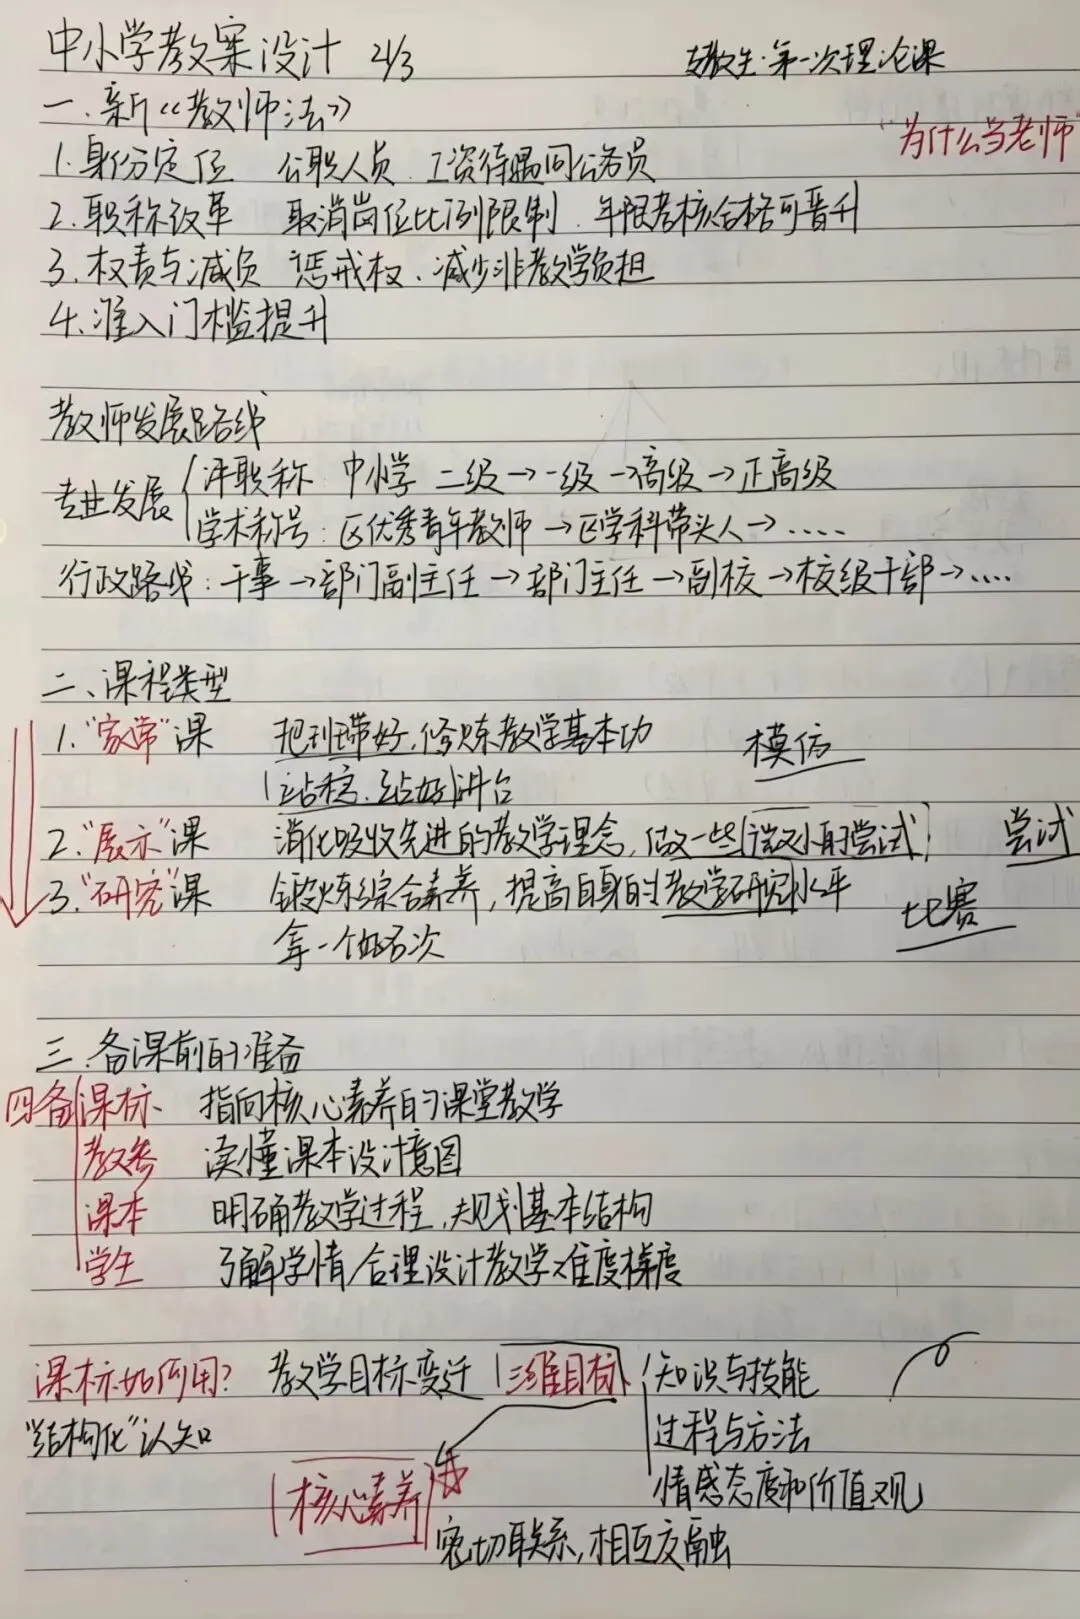 中小学教案设计 2/3
支教生·第一次理论课
一.新《教师法》
"为什么当老师"
1.身份定位 公职人员.工资待遇同公务员
2.职称改革 取消岗位比例限制.年限考核合格可晋升
3.权责与减负 惩戒权.减少非教学负担
4.准入门槛提升
教师发展路线
专业发展 评职称 中小学 二级→一级→高级→正高级
学术称号:区优秀青年教师→区学科带头人→.....
行政路线:干事→部门副主任→部门主任→副校→校级干部→....
二、课程类型
1."家常"课 把班带好,修炼教学基本功 模仿
站稳.站好讲台
2."展示"课 消化吸收先进的教学理念,做一些微小的尝试; 尝试
3."研究"课 锻炼综合素养,提高自身的教学研究水平 比赛
拿一个好名次
三.备课前的准备
四备 课标、 指向核心素养的课堂教学
教参 读懂课本设计意图
课本 明确教学过程,规划基本结构
学生 了解学情,合理设计教学难度梯度
课标如何用? 教学目标变迁 三维目标、 知识与技能
"结构化"认知 过程与方法
情感态度和价值观
核心素养
密切联系,相互交融